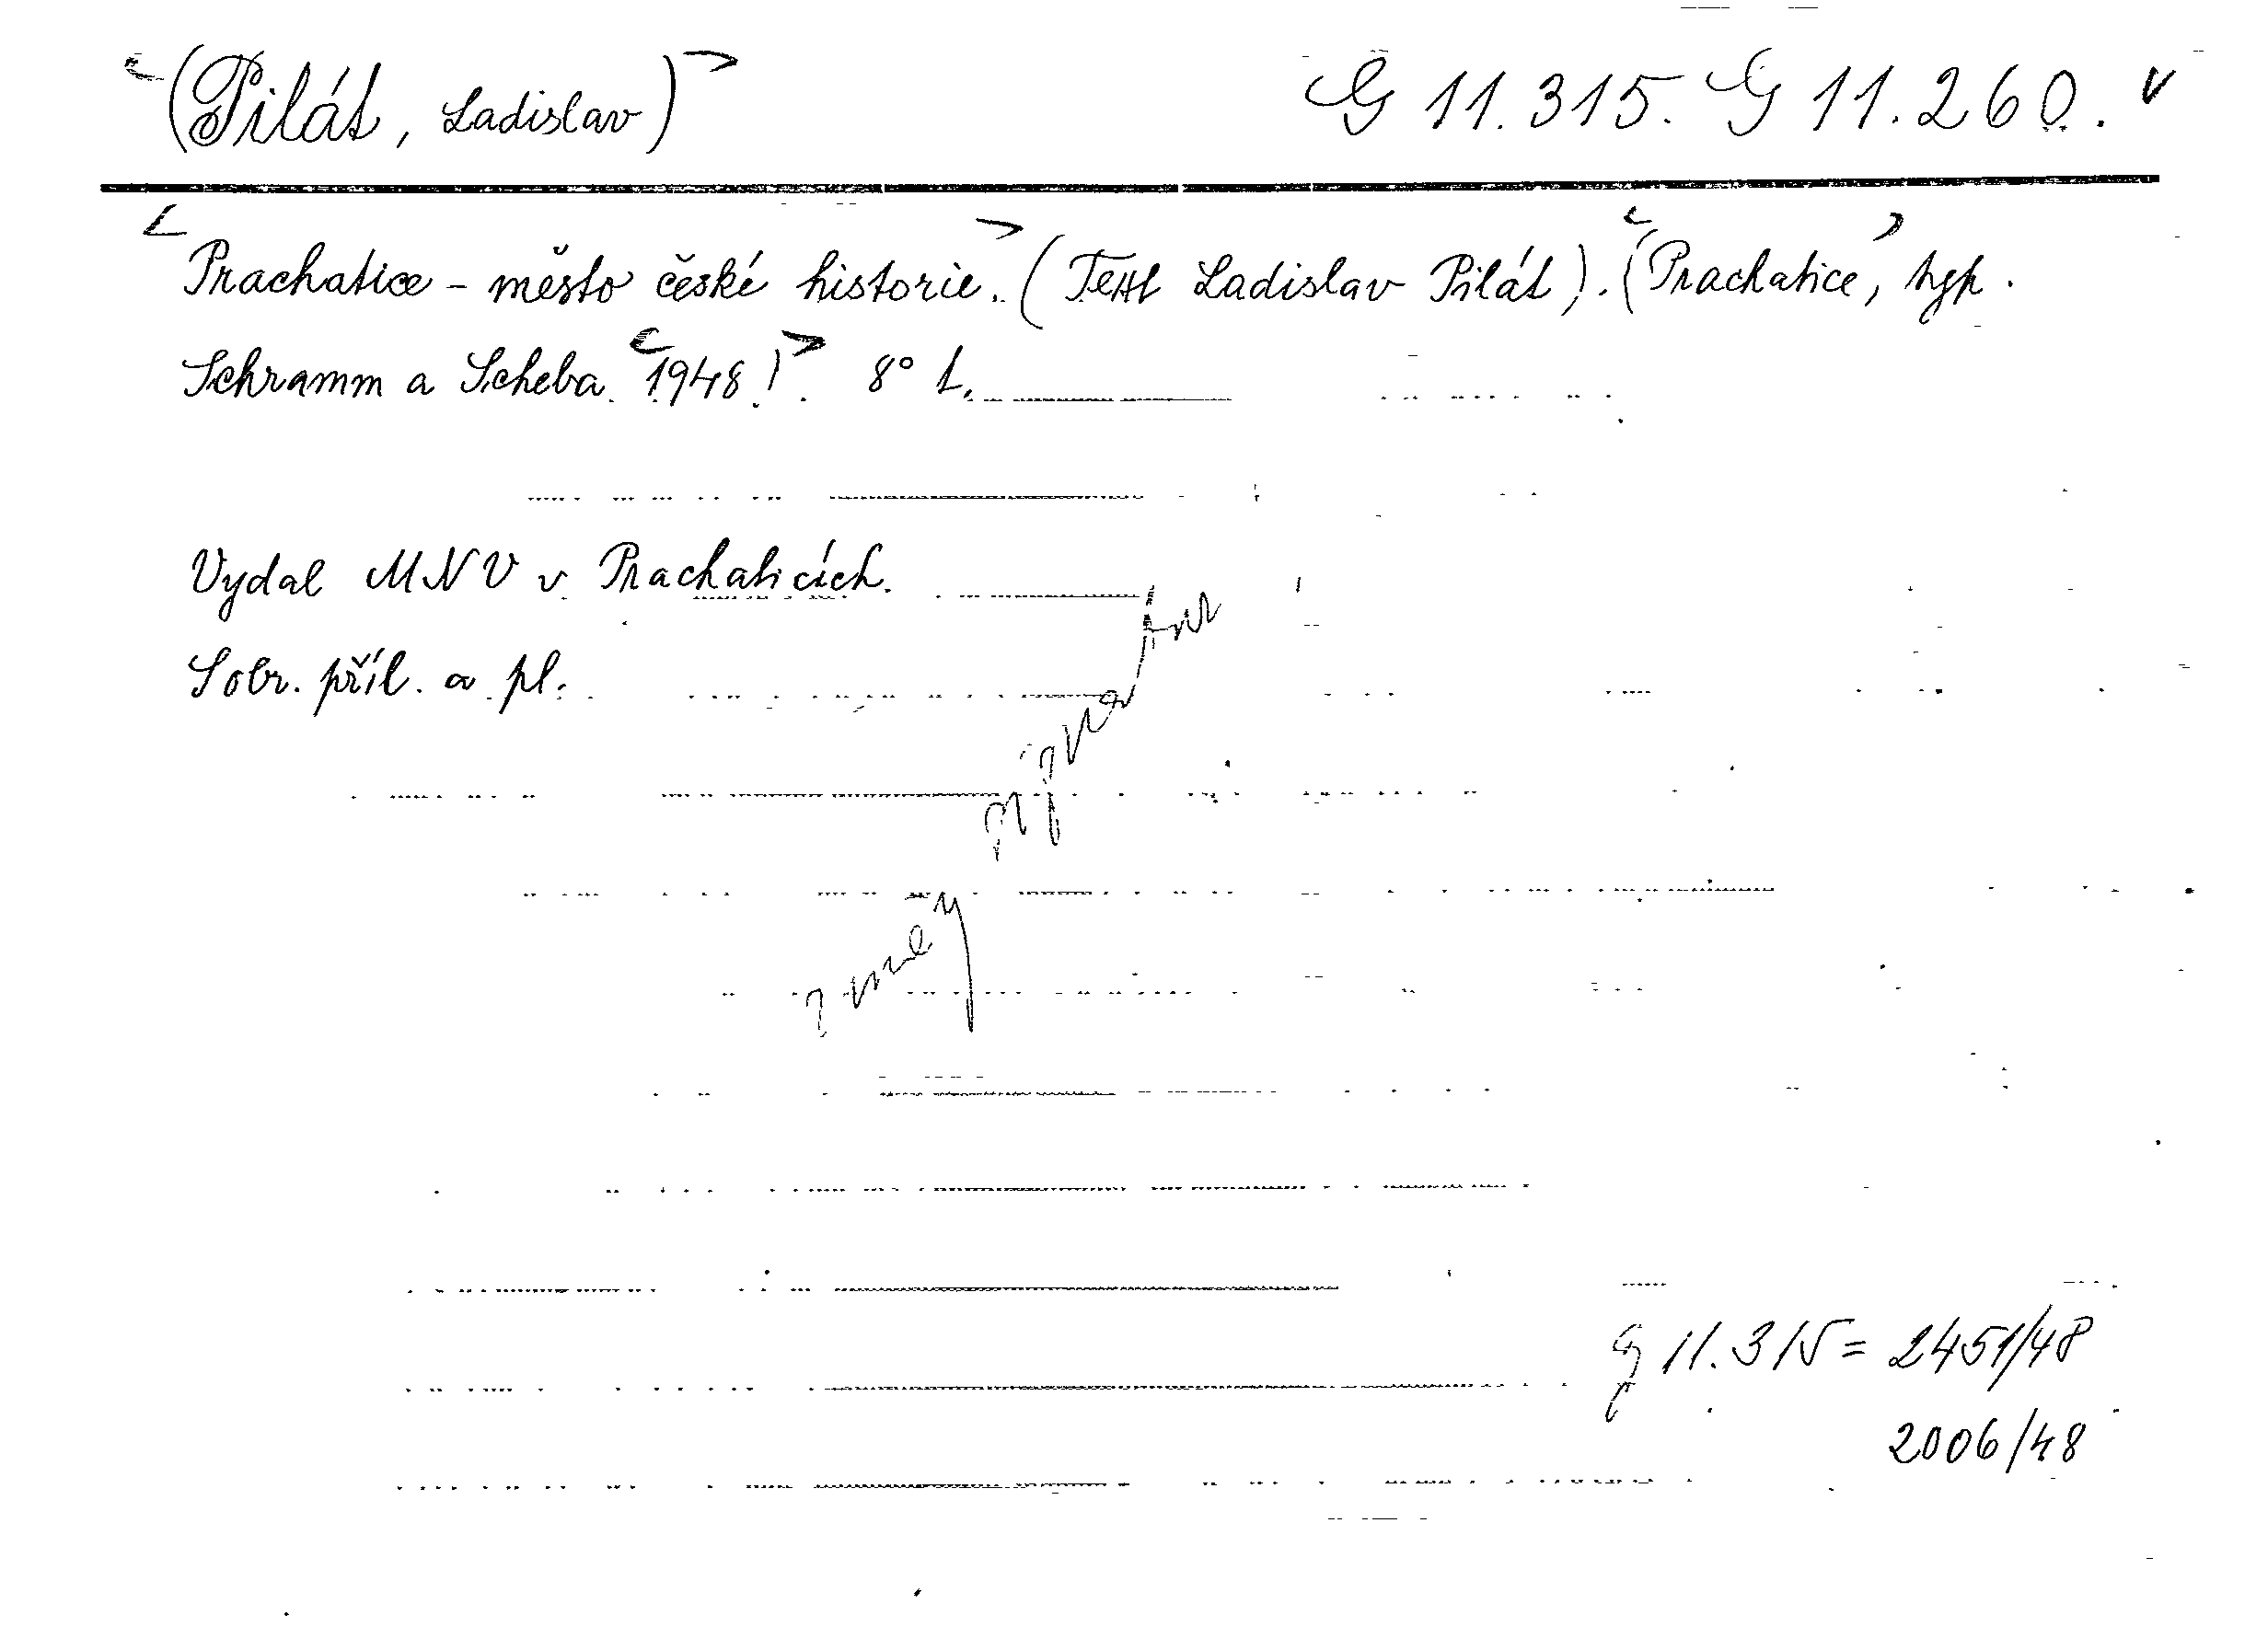 (Pilát, Ladislav) G 11.315. G 11.260. v
Prachatice - město české historie. (Text Ladislav Pilát). (Prachatice, typ.
Schramm a Scheba 1948!). 8° L.
Vydal MNV v Prachaticích.
S obr. příl. a pl.
změy
G 11.315 = 2451/48
2006/48